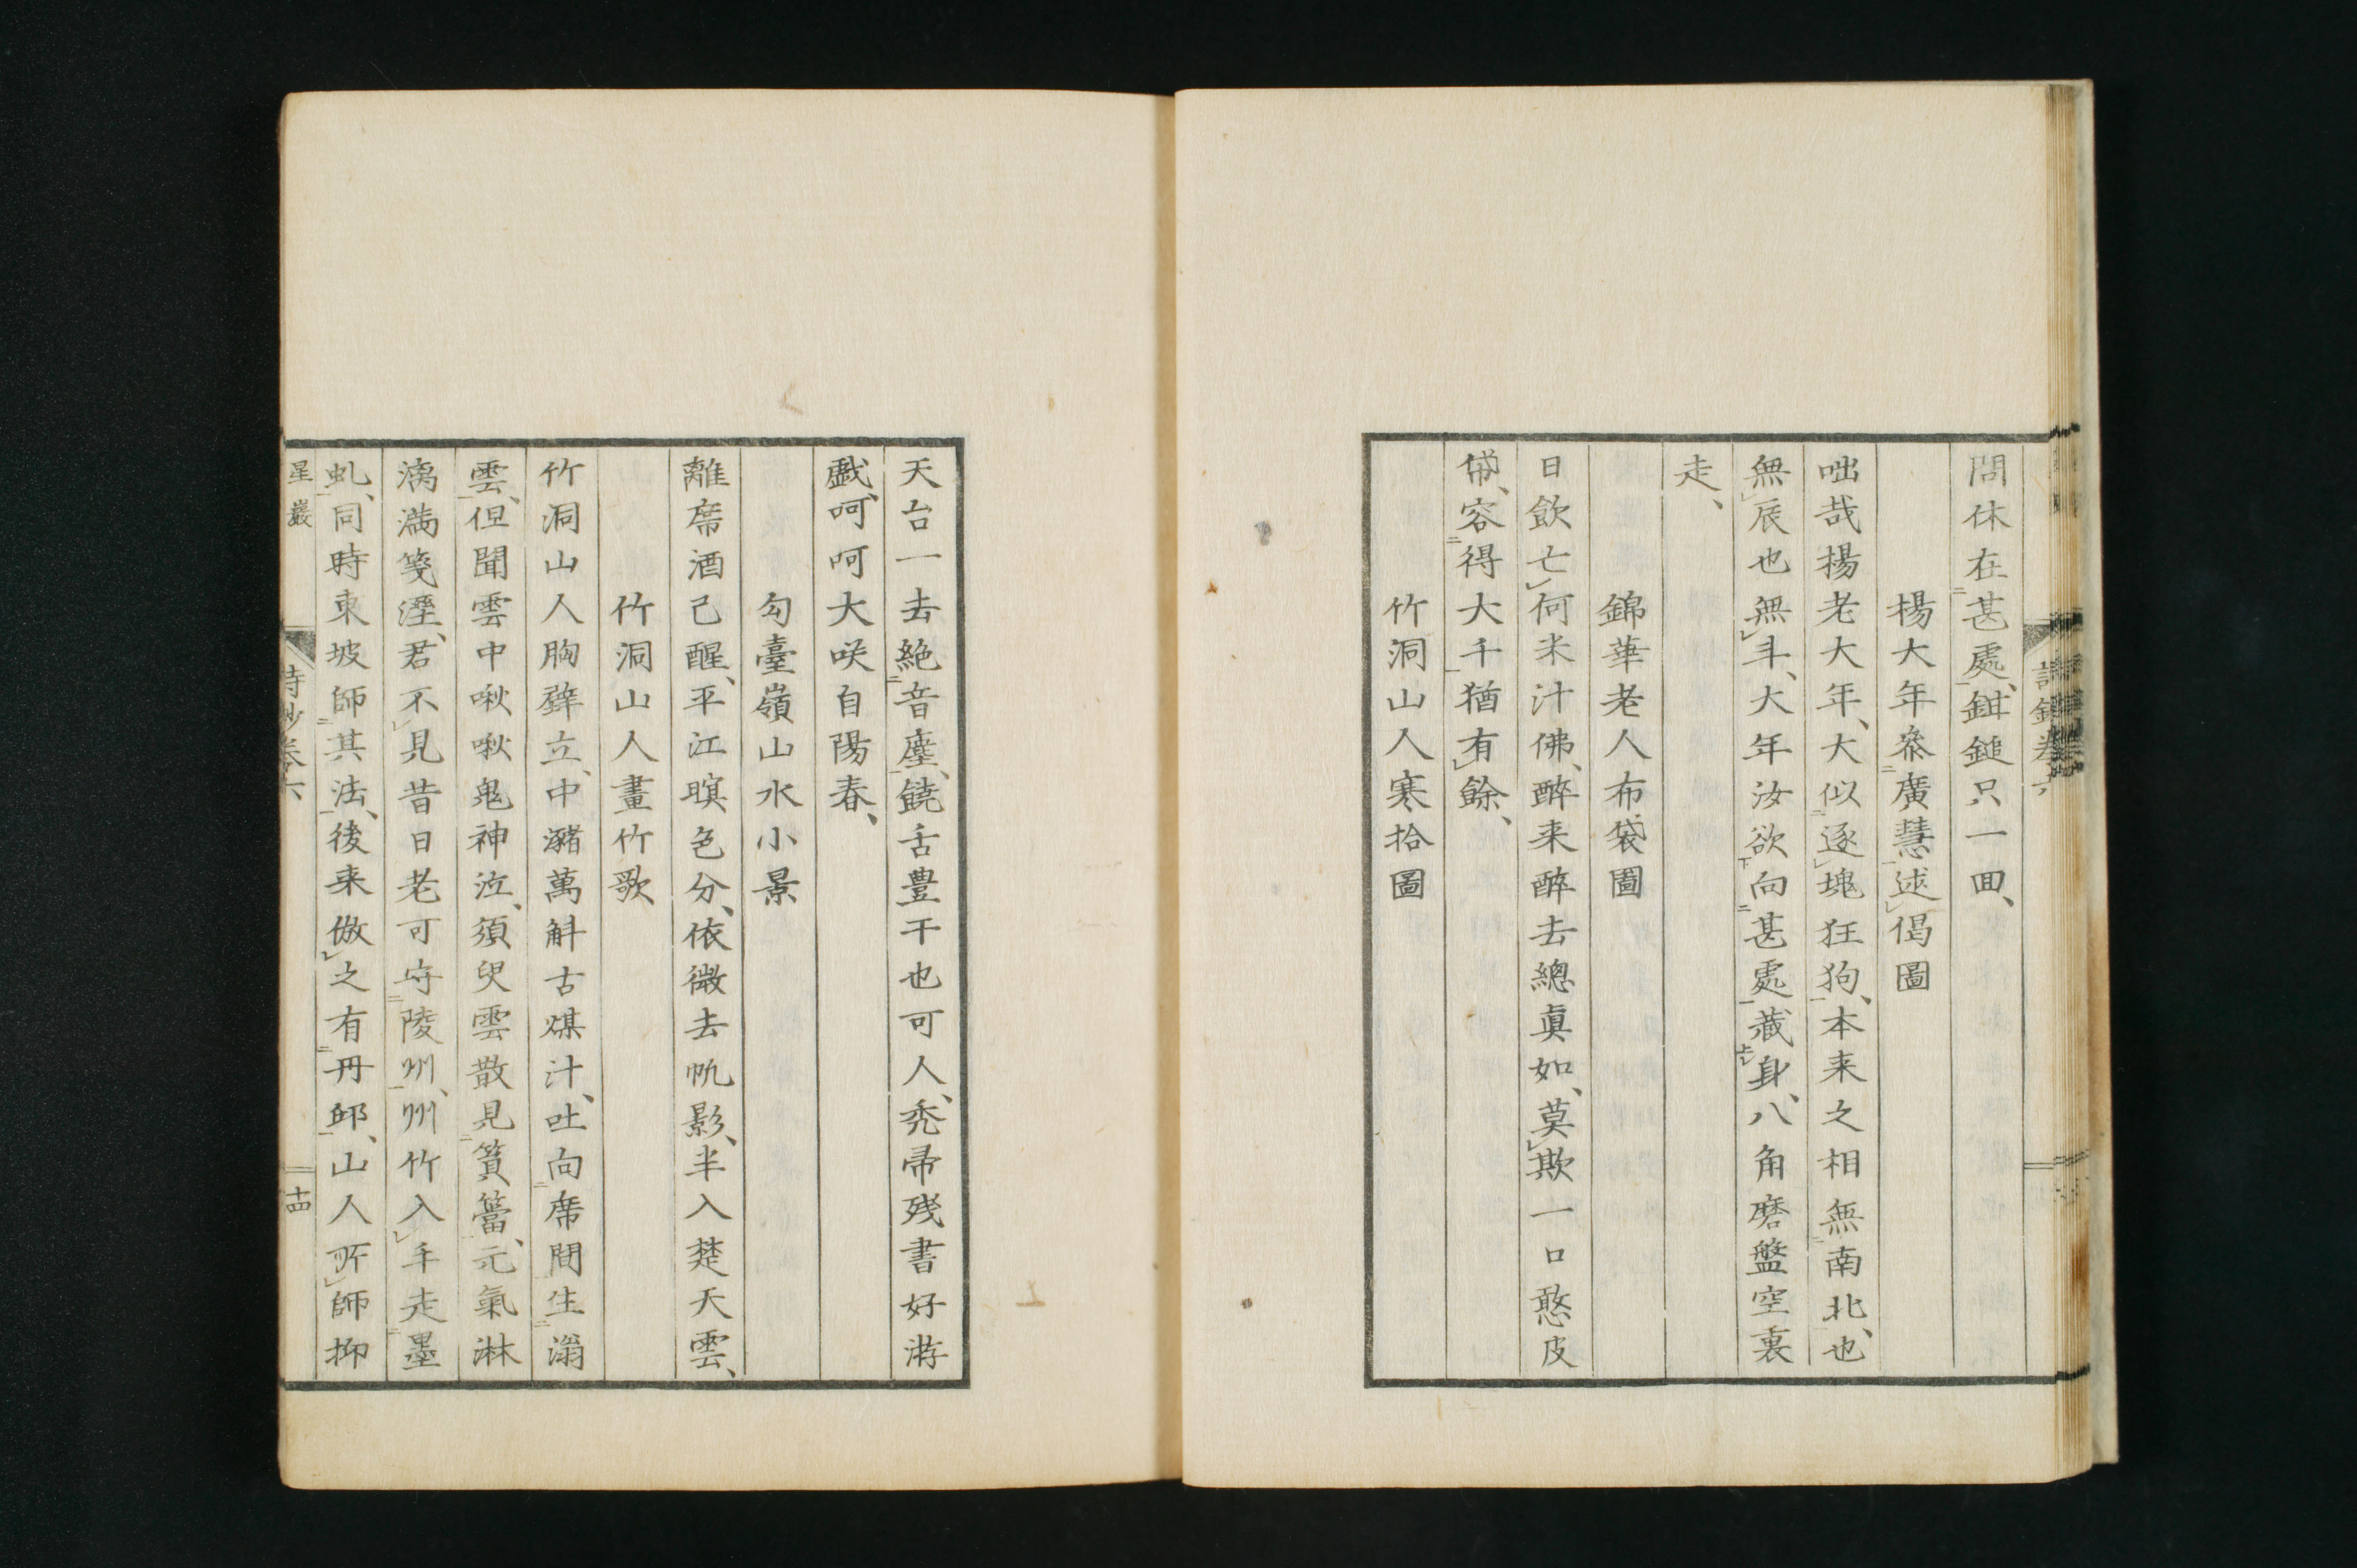 問休在甚處、鉗鎚只一回、
楊大年叅廣慧述偈圖
咄哉楊老大年、大似逐塊狂狗、本来之相無南北、也
無辰也無斗、大年汝欲向甚處藏身、八角磨盤空裏
走、
錦華老人布袋圖
日飲亡何米汁佛、醉来醉去總眞如、莫欺一口憨皮
帒、容得大千猶有餘、
竹洞山人寒拾圖
天台一去絶音塵、饒舌豊干也可人、禿帚残書好游
戯、呵呵大咲自陽春、
勾臺嶺山水小景
離席酒已醒、平江暝色分、依微去帆影、半入楚天雲、
竹洞山人畫竹歌
竹洞山人胸辟立、中瀦萬斛古煤汁、吐向席間生滃
雲、但聞雲中啾啾鬼神泣、須臾雲散見篔簹、元氣淋
漓満箋溼、君不見昔日老可守陵州、州竹入手走墨
虬、同時東坡師其法、後来倣之有丹邱、山人所師抑
星巖
詩鈔卷六
十四